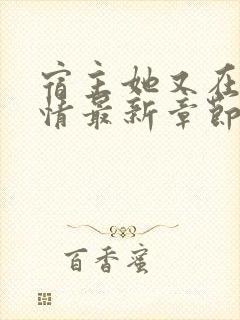 宿主她又在
情最新章節
百香蜜